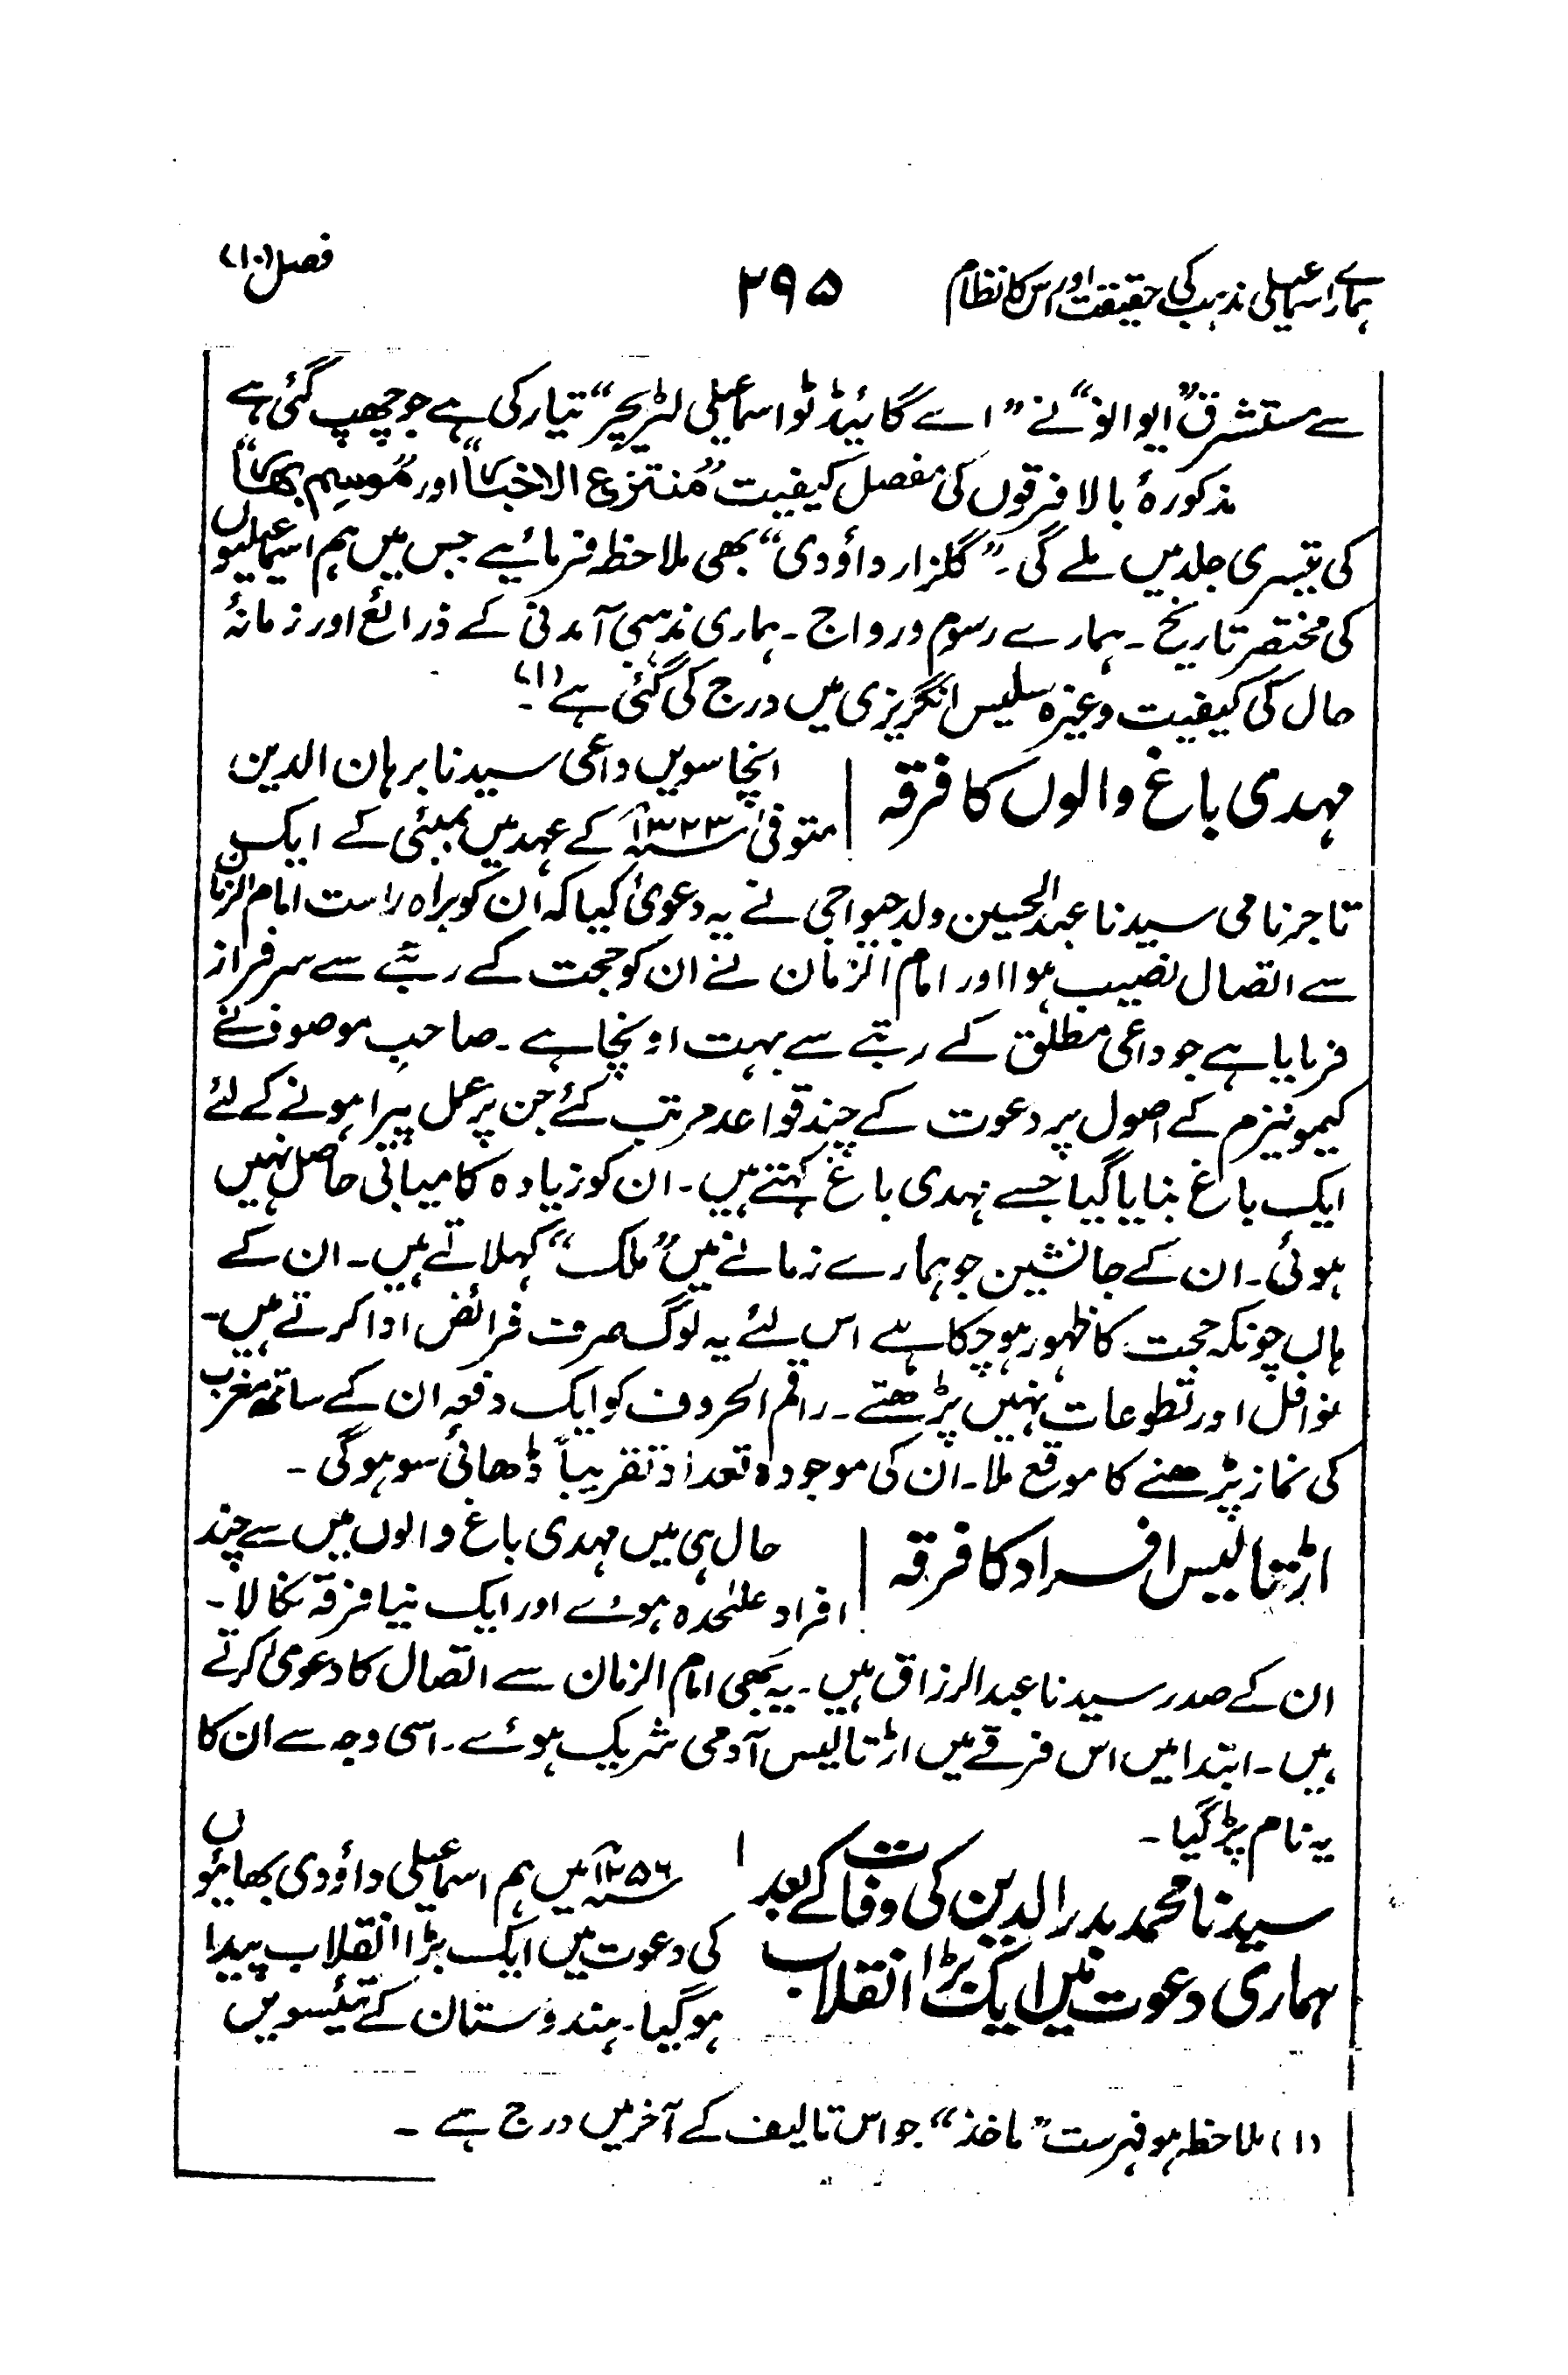 ہمارے اسماعیلی مذہب کی حقیقت اور اس کا نظام ۲۹۵ فصل (۱۰)
سے مستشرق ”ایوانوف“ نے ”اے گائیڈ ٹو اسماعیلی لٹریچر“ تیار کی ہے جو چھپ گئی ہے
مذکورۂ بالا فرقوں کی مفصل کیفیت ”منتزع الاخبار“ اور ”موسم بہار“
کی تیسری جلد میں ملے گی۔ ”گلزار داؤدی“ بھی ملاحظہ فرمائیے جس میں ہم اسماعیلیوں
کی مختصر تاریخ۔ ہمارے رسوم و رواج۔ ہماری مذہبی آمدنی کے ذرائع اور زمانۂ
حال کی کیفیت وغیرہ سلیس انگریزی میں درج کی گئی ہے (۱)۔
مہدی باغ والوں کا فرقہ
انچاسویں داعی سیدنا برہان الدین
متوفیٰ ۱۳۲۳ھ کے عہد میں بمبئی کے ایک
تاجر نامی سیدنا عبدالحسین ولد جیواجی نے یہ دعویٰ کیا کہ ان کو براہ راست امام الزمان
سے اتصال نصیب ہوا اور امام الزمان نے ان کو حجت کے رتبے سے سرفراز
فرمایا ہے جو داعی مطلق کے رتبے سے بہت اونچا ہے۔ صاحبِ موصوف نے
کیمونیزم کے اصول پر دعوت کے چند قواعد مرتب کئے جن پر عمل پیرا ہونے کے لئے
ایک باغ بنایا گیا جسے مہدی باغ کہتے ہیں۔ ان کو زیادہ کامیابی حاصل نہیں
ہوئی۔ ان کے جانشین جو ہمارے زمانے میں ”ملک“ کہلاتے ہیں۔ ان کے
ہاں چونکہ حجت کا ظہور ہو چکا ہے اس لئے یہ لوگ صرف فرائض ادا کرتے ہیں۔
نوافل اور تطوعات نہیں پڑھتے۔ راقم الحروف کو ایک دفعہ ان کے ساتھ مغرب
کی نماز پڑھنے کا موقع ملا۔ ان کی موجودہ تعداد تقریباً ڈھائی سو ہوگی۔
اڑتالیس افراد کا فرقہ
حال ہی میں مہدی باغ والوں میں سے چند
افراد علیٰحدہ ہوئے اور ایک نیا فرقہ نکالا۔
ان کے صدر سیدنا عبدالرزاق ہیں۔ یہ بھی امام الزمان سے اتصال کا دعویٰ کرتے
ہیں۔ ابتدا میں اس فرقے میں اڑتالیس آدمی شریک ہوئے۔ اسی وجہ سے ان کا
یہ نام پڑ گیا۔
سیدنا محمد بدرالدین کی وفات کے بعد
ہماری دعوت میں ایک بڑا انقلاب
۱۲۵۶ھ میں ہم اسماعیلی داؤدی بھائیوں
کی دعوت میں ایک بڑا انقلاب پیدا
ہوگیا۔ ہندوستان کے تیئسویں
(۱) ملاحظہ ہو فہرست ”ماخذ“ جو اس تالیف کے آخر میں درج ہے۔